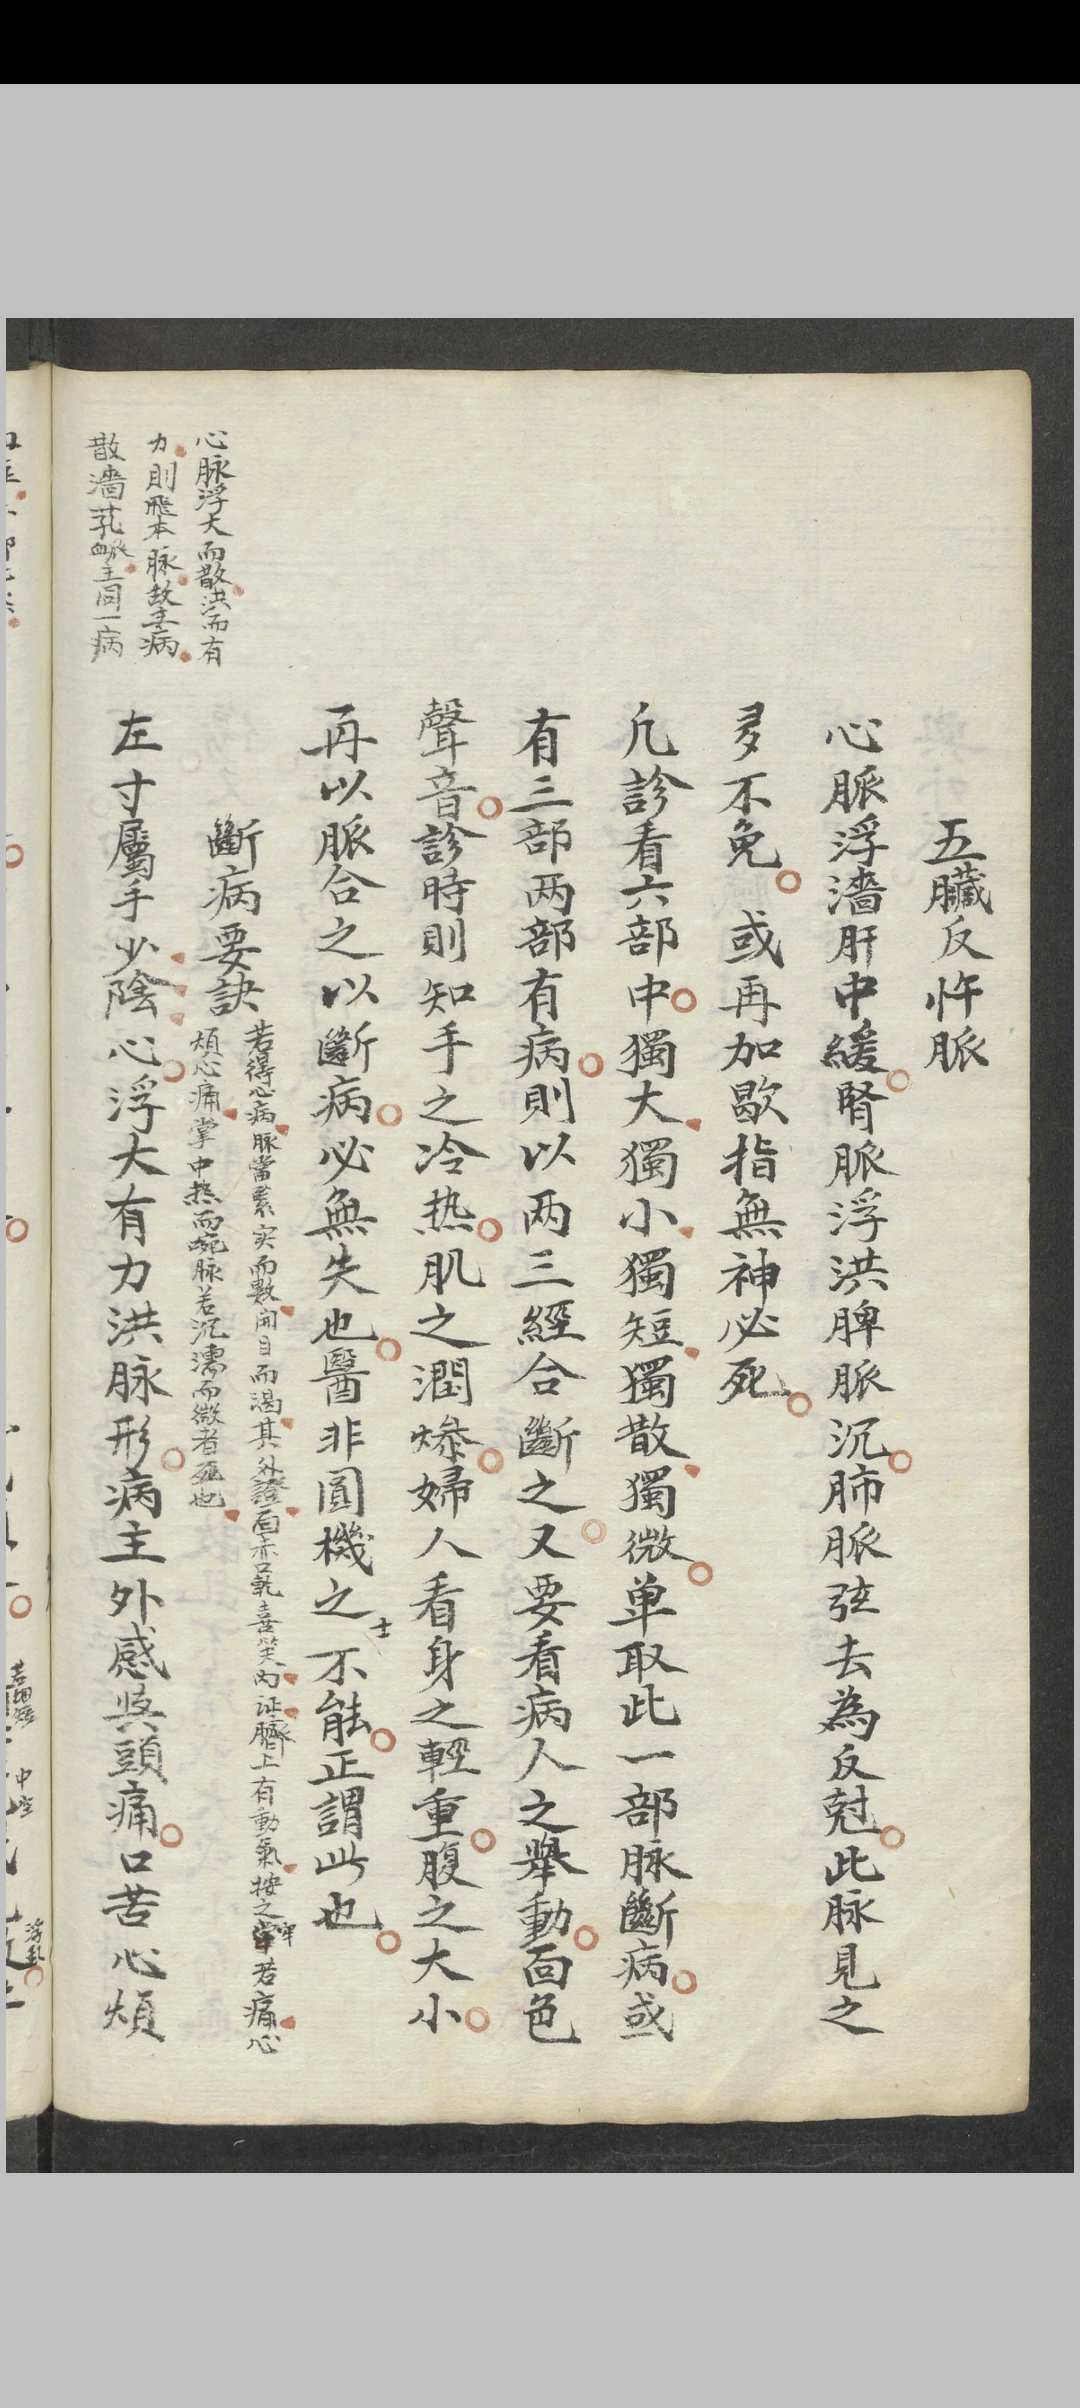 五臟反忤脈
心脈浮濇肝中緩腎脈浮洪脾脈沉肺脈弦去為反尅此脉見之
多不免　或再加歇指無神必死
凢診看六部中獨大獨小獨短獨散獨微单取此一部脉斷病或
有三部两部有病則以两三經合斷之又要看病人之舉動面色
聲音診時則知手之冷热肌之潤燥婦人看身之輕重腹之大小
再以脈合之以斷病必無失也醫非圓機之士不能正謂此也
斷病要訣
若得心病脉當緊实而數開目而渴其外證面赤口乾喜笑内证臍上有動氣按之牢若痛心
煩心痛掌中热而啘脉若沉濡而微者死也
心脉浮大而散洪而有
力則飛本脉故主病
散濇芤 主同一病
左寸屬手少陰心浮大有力洪脉形病主外感與頭痛口苦心煩